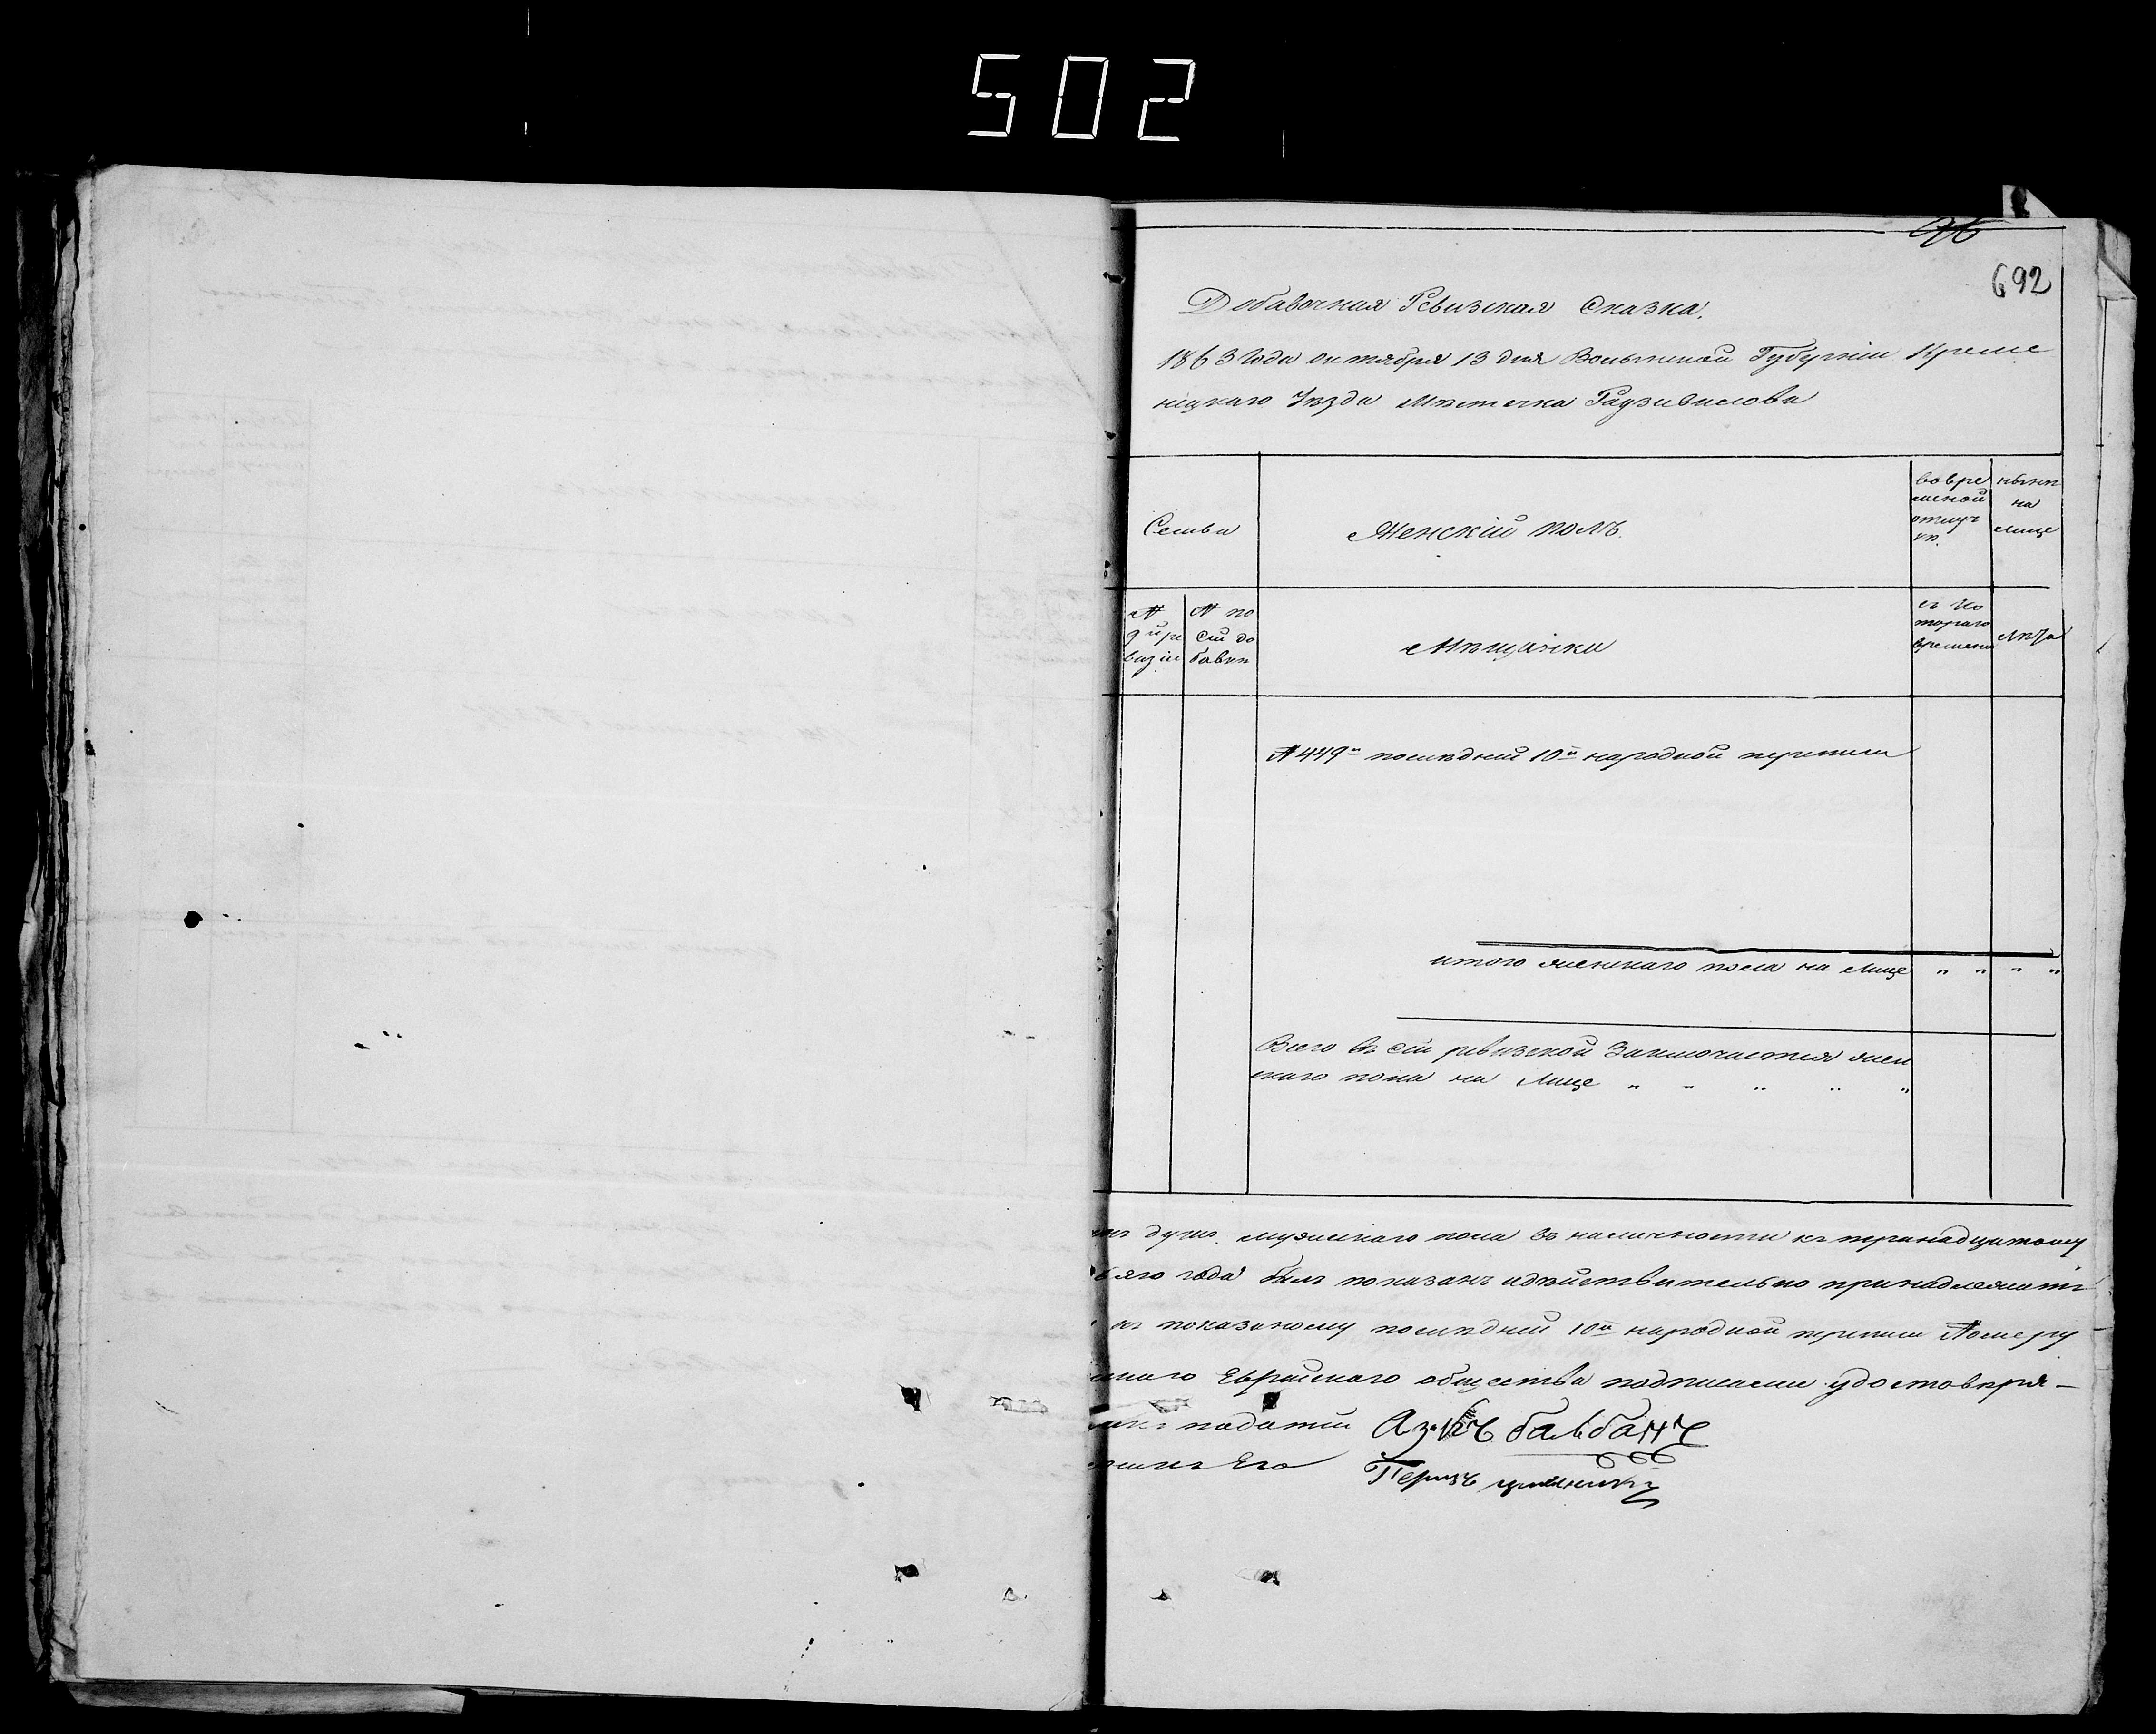 502
96
692
Добавочная Ревизская Сказка.
1863 Года октября 13 дня Волынской Губерніи Креме
ницкаго Уѣзда Мѣстечка Радзивилова
Семьи
Женскій полъ.
во вре
менной
отлуч
кѣ.
нынѣ
на
лице
№
9й ре
визіи
№ по
сій до
бавкѣ
Мѣщанки
съ ко
тораго
времени
Лѣта
№ 449й послѣдній 10й народной переписи
итого женскаго пола на лице " " " "
Всего въ сій ревизской Заключается жен
скаго пола на Лице " " " " "
душъ мужескаго пола въ наличности къ тринадцатому
года былъ показанъ идѣйствительно принадлежитъ
къ показаному послѣдній 10й народной переписи Номеру
Еврейскаго общества подписаемъ удостовѣря-
податей Азикъ балбанъ
Его Перизъ